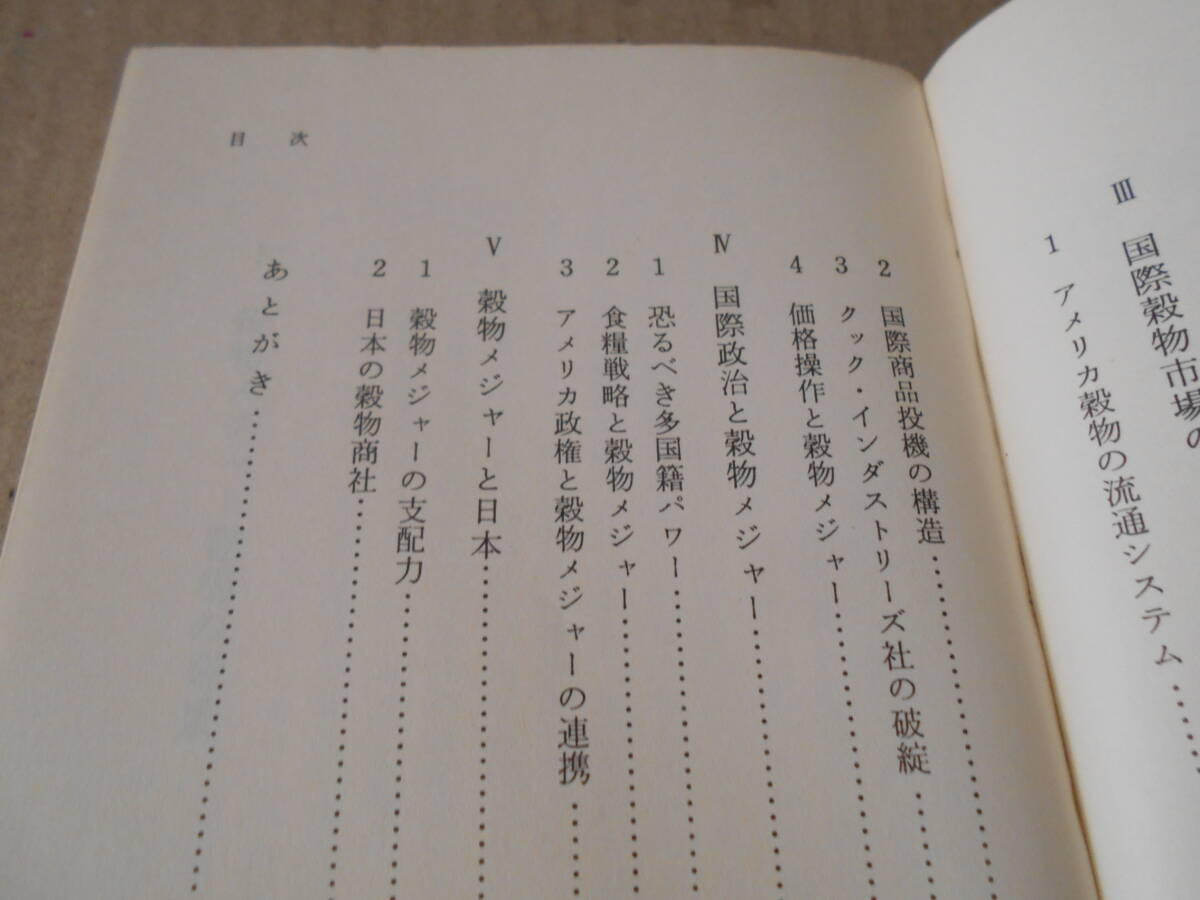 Ⅲ 国際穀物市場の
1 アメリカ穀物の流通システム……
目次
2 国際商品投機の構造……
3 クック・インダストリーズ社の破綻……
4 価格操作と穀物メジャー……
Ⅳ 国際政治と穀物メジャー……
1 恐るべき多国籍パワー……
2 食糧戦略と穀物メジャー……
3 アメリカ政権と穀物メジャーの連携……
Ⅴ 穀物メジャーと日本……
1 穀物メジャーの支配力……
2 日本の穀物商社……
あとがき……